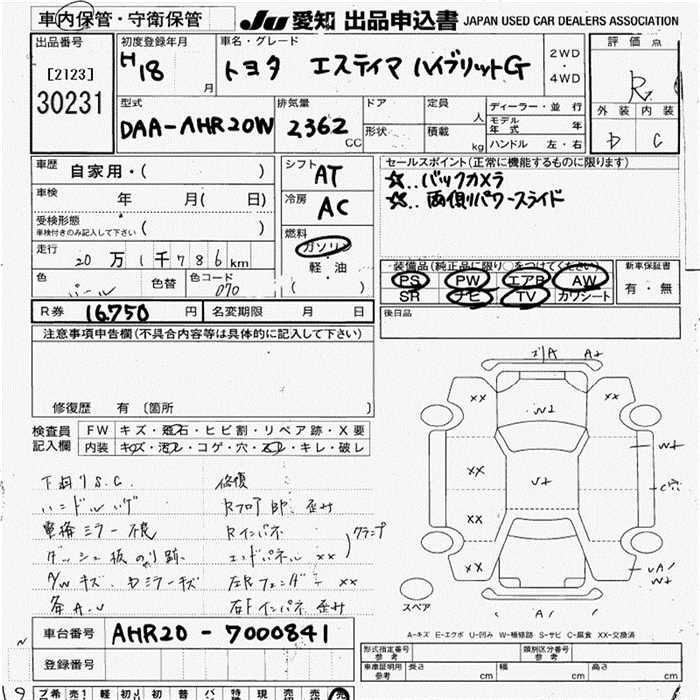 車内保管・守衛保管
JU 愛知 出品申込書 JAPAN USED CAR DEALERS ASSOCIATION
出品番号
[2123]
30231
初度登録年月
H18
月
車名・グレード
トヨタ エスティマ ハイブリットG
2WD
・
4WD
評価点
R
外装 内装
D C
型式
DAA-AHR20W
排気量
2362
CC
ドア
形状
定員
人
積載
kg
ディーラー・並 行
モデル
年 式
年
ハンドル 左・右
車歴
自家用・( )
車検
年 月( 日)
受検形態
車検付きのみ記入して下さい
( )
走行
20万1千786km
色
パール
色替
色コード
070
シフト
AT
冷房
AC
燃料
ガソリン
軽・油
( )
セールスポイント(正常に機能するものに限ります)
☆..バックカメラ
☆..両側パワースライド
装備品(純正品に限り○をつけてください)
PS PW エアB AW
SR ナビ TV カワシート
新車保証書
有・無
R券 16,750 円
名変期限 月 日
後日品
注意事項申告欄(不具合内容等は具体的に記入して下さい)
修復歴 有 [箇所 ]
検査員
記入欄
FW キズ・飛石・ヒビ割・リペア跡・X要
内装 キズ・汚レ・コゲ・穴・スレ・キレ・破レ
下廻りS.C.
ハンドルハゲ
電格ミラー不良
ダッシュ板のり跡
A/Wキズ.ドミラーキズ
条A.U
修復
Rフロア 歪み
Rインパネ
エンドパネル xx
クランプ
左Rフェンダー xx
右Fインパネ歪み
A A+
XX XX
W1
W+
XX XX
U+
C穴
XX
XX XX
UA/
W+
(A/ )
スペア
A-キズ E-エクボ U-凹み W-補修跡 S-サビ C-腐食 XX-交換済
車台番号
AHR20 - 7000841
登録番号
形式指定番号
参 考
類別区分番号
参 考
車庫証明用
参考
長さ cm
幅 cm
高さ cm